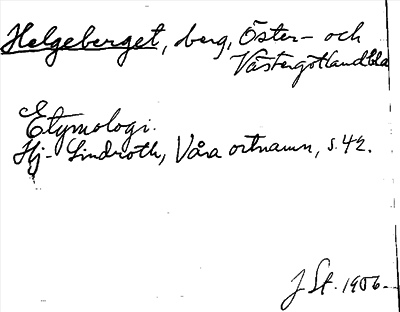 Helgeberget, berg, Öster- och
Västergötland bl a
Etymologi.
Hj. Lindroth, Våra ortnamn, s. 42.
J. St. 1956.